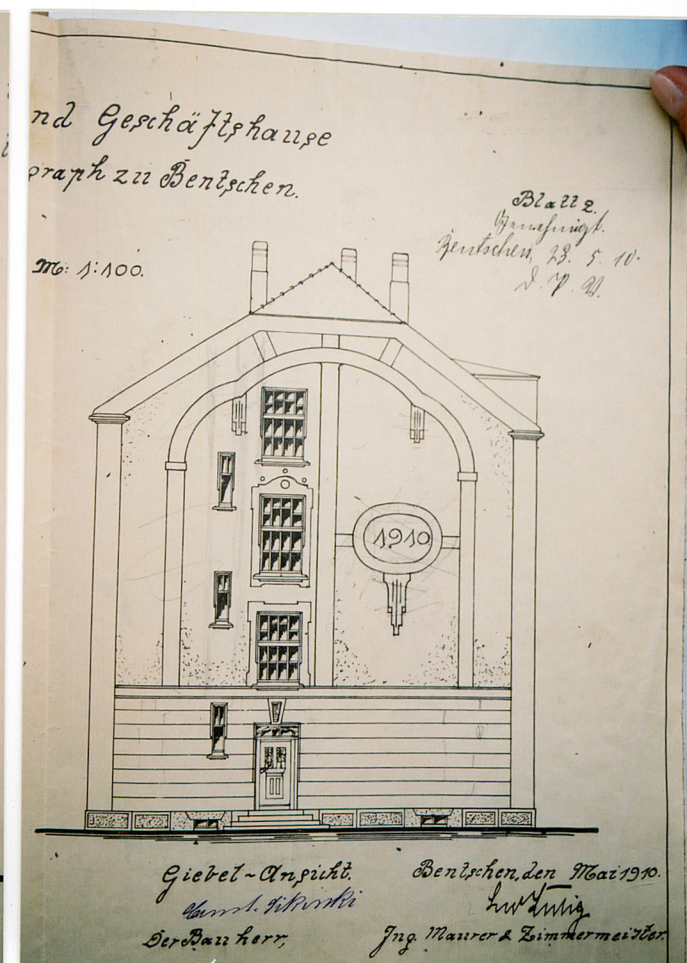 nd Geschäftshause
graph zu Bentschen.
Blatt 2.
Genehmigt.
Bentschen, 23. 5. 10.
M: 1:100.
1910
Giebel-Ansicht.
Bentschen, den Mai 1910.
Der Bauherr,
Ing. Maurer & Zimmermeister.